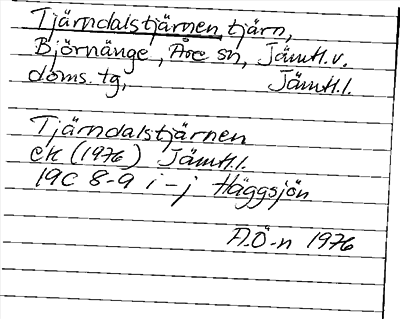 Tjärndalstjärnen tjärn,
Björnänge, Åre sn, Jämtl. v.
doms. tg, Jämtl. l.
Tjärndalstjärnen
ek (1976) Jämtl. l.
19C 8-9 i-j Häggsjön
A.Ö-n 1976